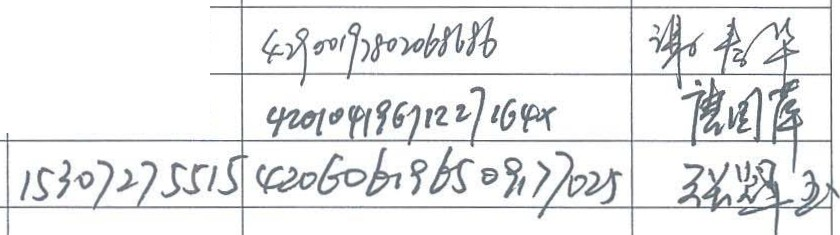 429001197802068686 谢春华
42010419671227164x 唐国萍
15307275515 420606196509177025 张翠玉